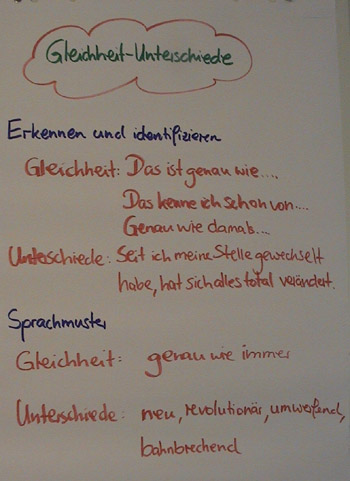 Gleichheit-Unterschiede
Erkennen und identifizieren
Gleichheit: Das ist genau wie....
Das kenne ich schon von....
Genau wie damals....
Unterschiede: Seit ich meine Stelle gewechselt
habe, hat sich alles total verändert.
Sprachmuster
Gleichheit: genau wie immer
Unterschiede: neu, revolutionär, umwerfend,
bahnbrechend